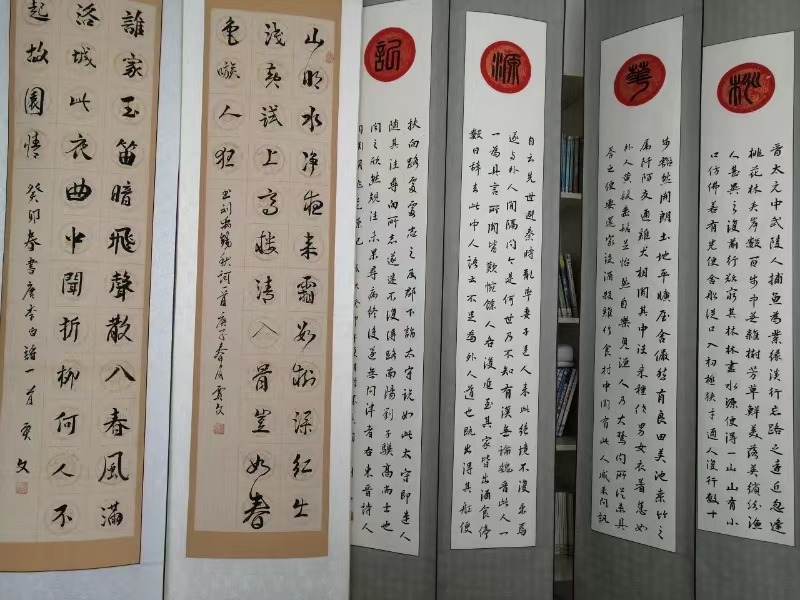 桃
晋太元中武陵人捕魚為業緣溪行忘路之遠近忽逢
桃花林夹岸數百步中無雜樹芳草鮮美落英繽纷漁
人甚異之復前行欲窮其林林盡水源便得一山山有小
口仿佛若有光便舍船從口入初極狹才通人復行數十
華
步豁然開朗土地平曠屋舍儼然有良田美池桑竹之
屬阡陌交通雞犬相聞其中往來種作男女衣著悉如
外人黄髮垂髫並怡然自樂見漁人乃大驚問所從來具
答之便要還家設酒殺雞作食村中聞有此人咸來問訊
源
自云先世避秦時亂率妻子邑人來此绝境不復出焉
遂与外人間隔问今是何世乃不知有漢無論魏晋此人一
一為具言所聞皆歎惋餘人各復延至其家皆出酒食停
數日辭去此中人語云不足為外人道也既出得其船便
記
扶向路處處志之及郡下詣太守說如此太守即遣人
隨其往尋向所志遂迷不復得路南陽劉子驥高尚士也
聞之欣然規往未果尋病終後遂無問津者右東晋詩人
山明水净夜来霜数树深红出
浅黄试上高楼清入骨岂如春
色嗾人狂 书刘禹锡秋词一首庚子春月
誰家玉笛暗飛聲散入春風滿
洛城此夜曲中聞折柳何人不
起故園情 癸卯春書唐李白詩一首